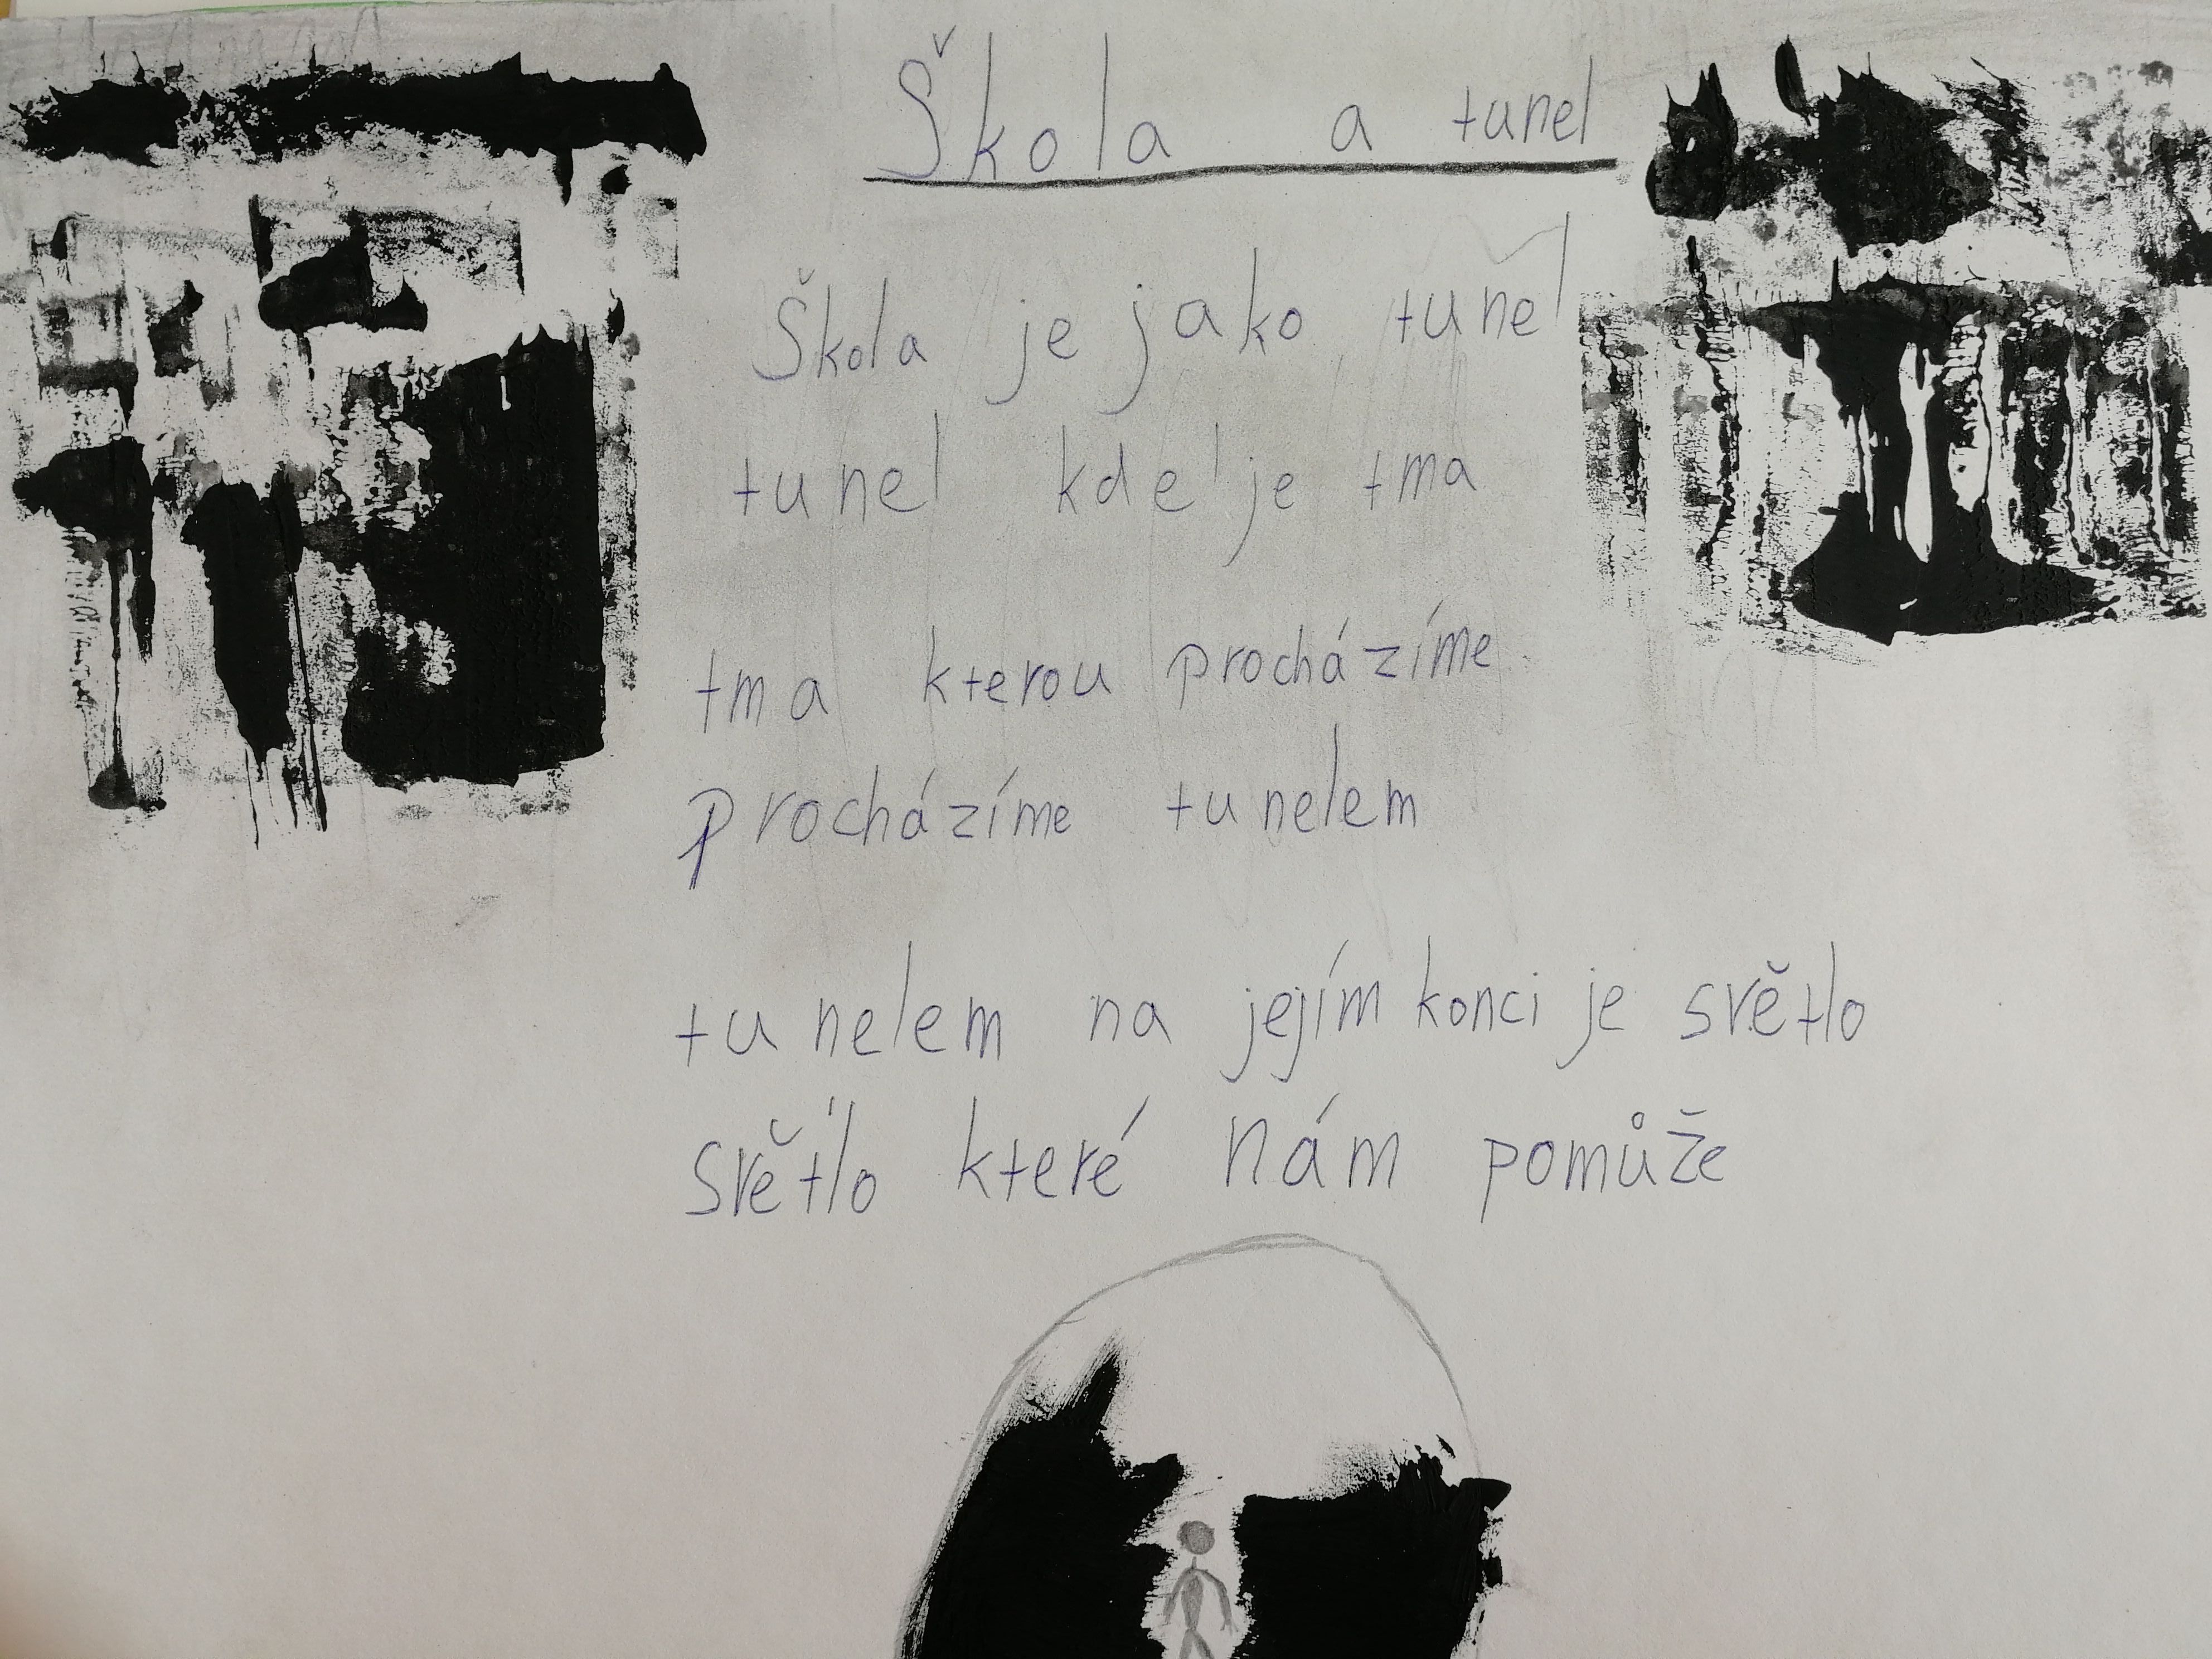 Škola a tunel
Škola je jako tunel
tunel kde je tma
tma kterou procházíme
procházíme tunelem
tunelem na jejím konci je světlo
světlo které nám pomůže